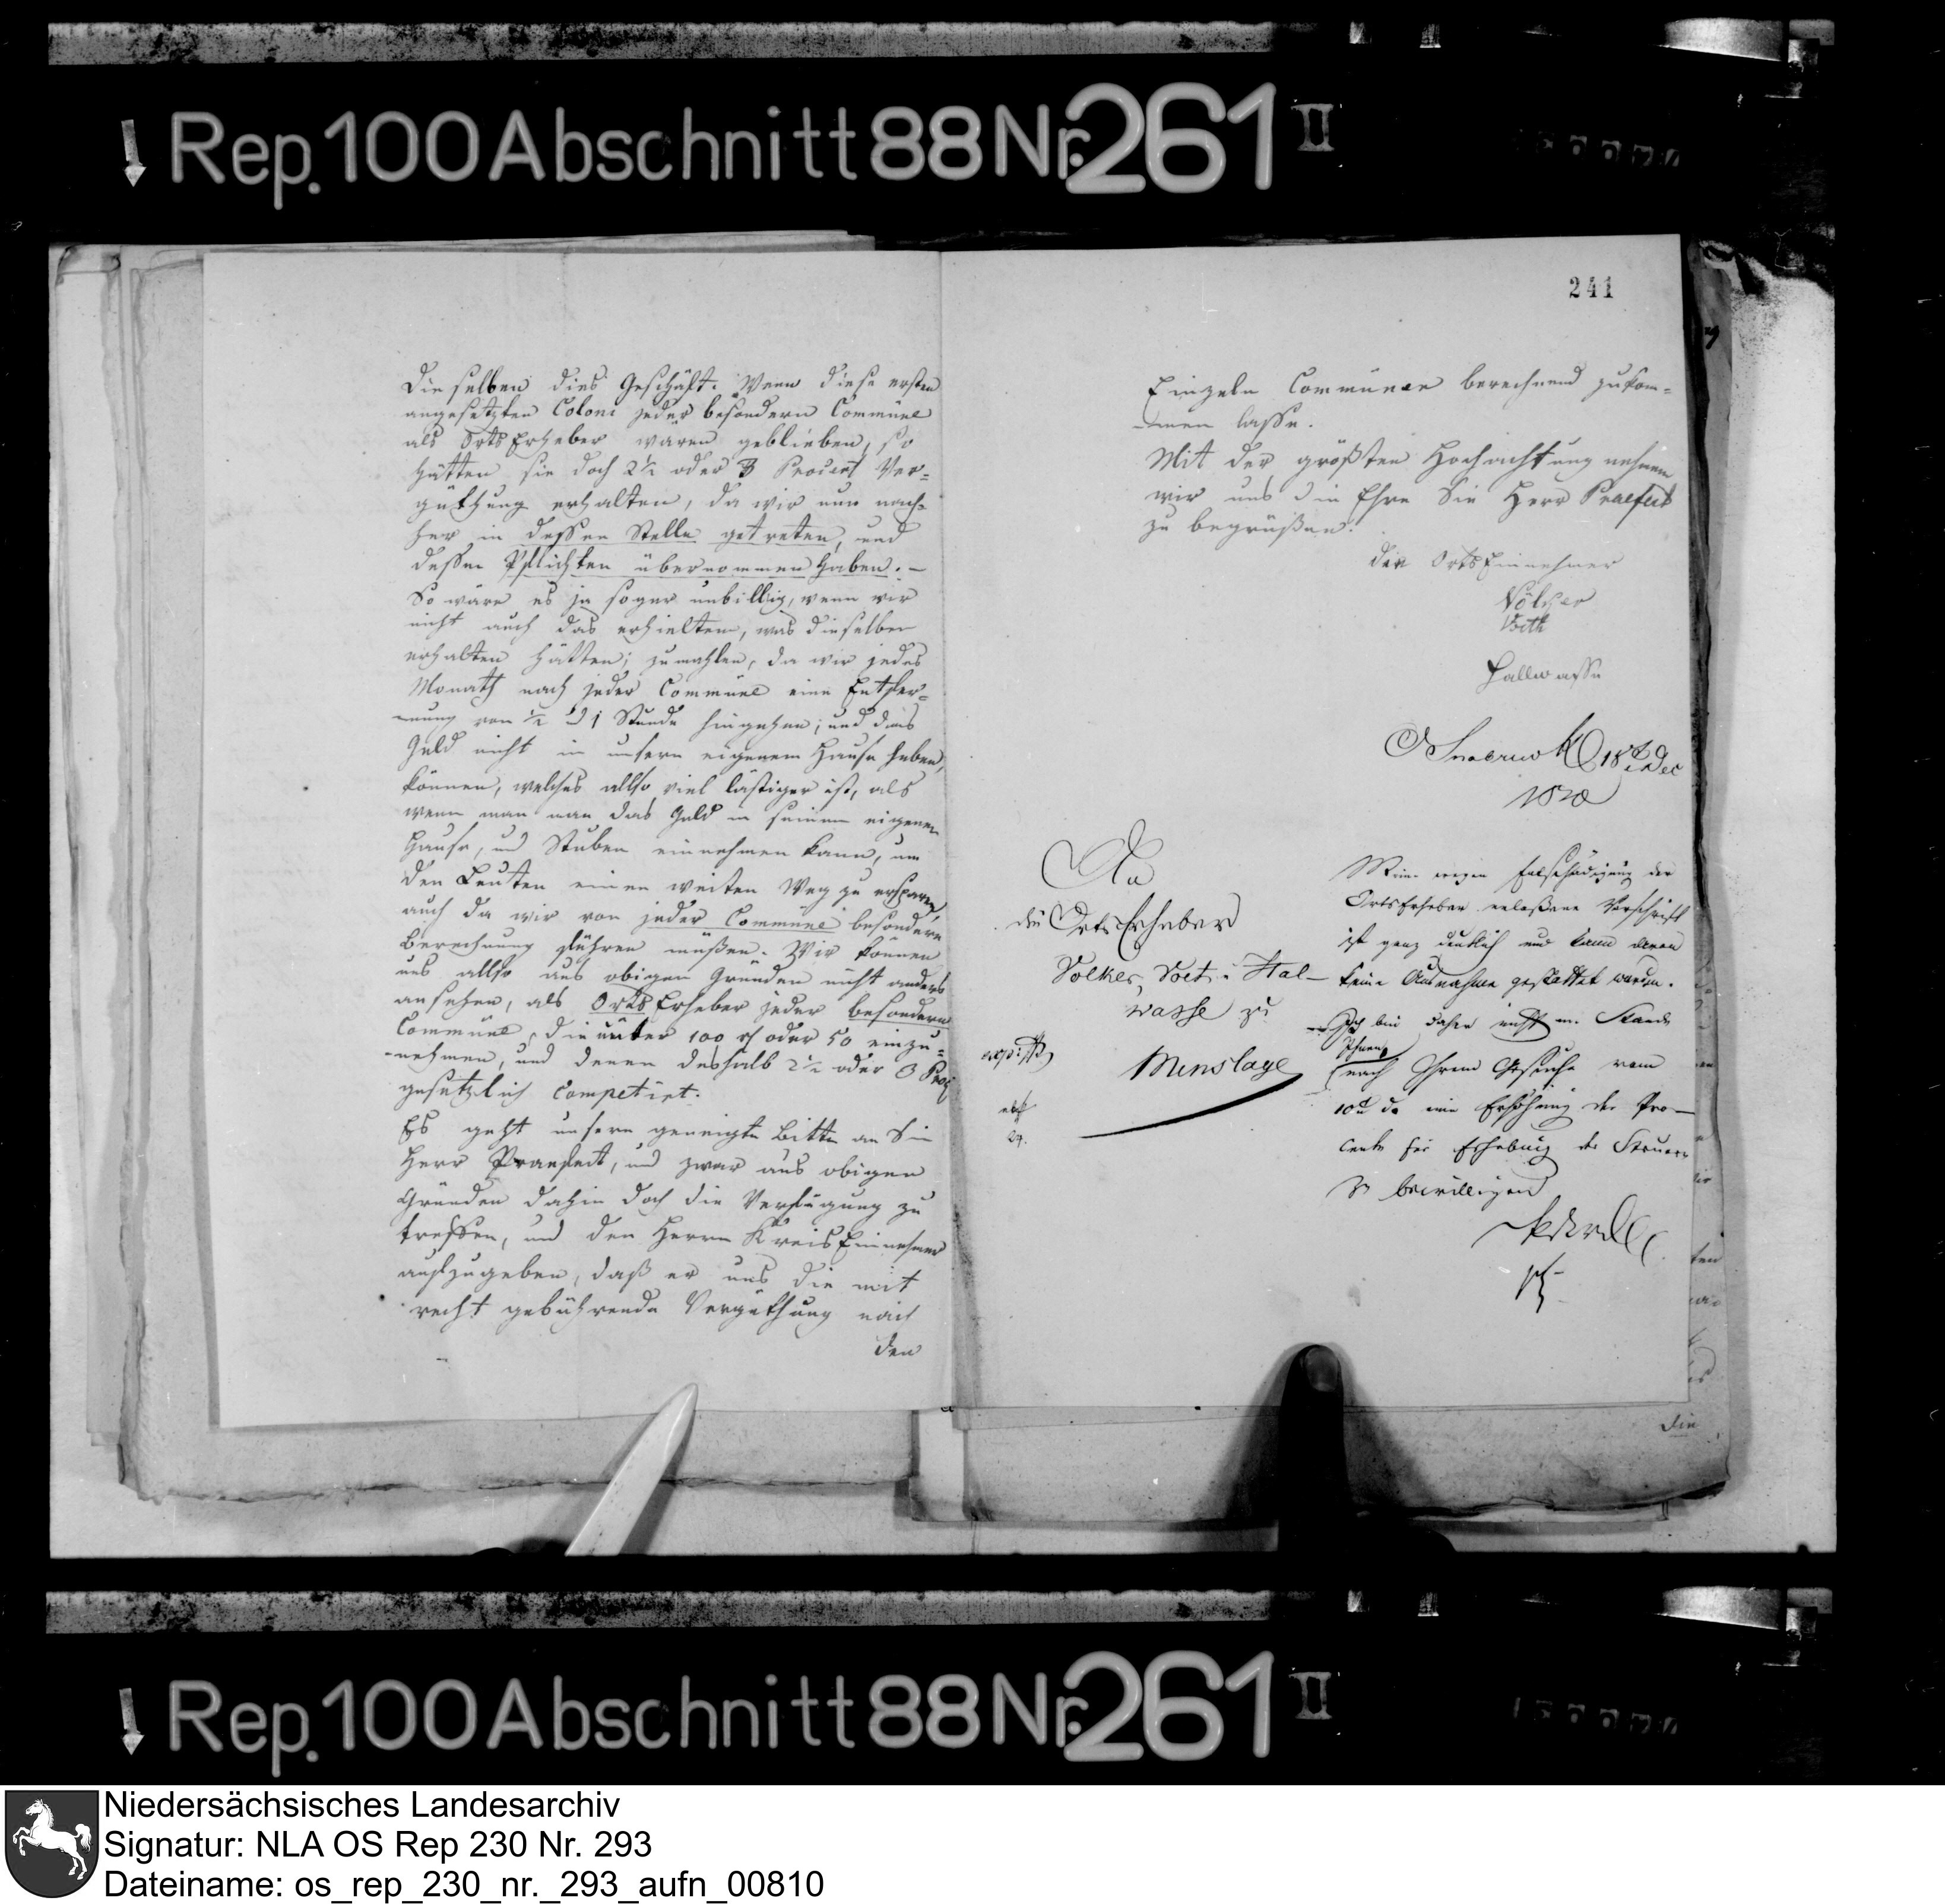 Rep. 100 Abschnitt 88 Nr. 261 II
Dieselben dies Geschäft. Wenn diese ersten
angesetzten Coloni jeder besondern Commüne
als Orts Erheber wären geblieben, so
hätten sie doch 2½ oder 3 Procent Ver=
güthung erhalten, da wir nun nach=
her in dessen Stelle getreten, und
dessen Pflichten übernommen haben. –
So wäre es ja sogar unbillig, wenn wir
nicht auch das erhielten, was dieselben
erhalten hätten; zumahlen, da wir jedes
Monath nach jeder Commüne eine Entfer=
=nung von ½ 1 Stunde hingehen; und dies
Geld nicht in unsern eigenem Hause heben
können, welches allso viel lästiger ist, als
wenn man das Geld in seinem eigenen
Hause, und Stuben einnehmen kann, um
den Leuten einen weiten Weg zu ersparen,
auch da wir von jeder Commüne besondere
Berechnung führen müßen. Wir können
uns allso aus obigen Gründen nicht anders
ansehen, als Orts Erheber jeder besondern
Commüne, die unter 100 oder 50 einzu=
=nehmen, und denen deshalb 2½ oder 3
gesetzlich competirt.
Es geht unsere geneigte Bitte an Sie
Herr Praefect, und zwar aus obigen
Gründen dahin doch die Verfügung zu
treffen, und den Herrn Kreis Einnehmer
aufzugeben, daß er uns die mit
recht gebührende Vergüthung nach
den
241
Einzeln Commünen berechnend zukom=
=men lasse.
Mit der größten Hochachtung nehmen
wir uns die Ehre Sie Herr Praefect
zu begrüßen.
die Orts Einnehmer
Völker
Voeth
Hallwasse
Osnabruck 18 Dec
1810
An
die Orts Erheber
Volker, Voet Hal-
wasse zu
Menslage
Meine wegen Entschädigung der
Orts Erheber erlaßene Vorschrift
ist ganz deutlich und kann davon
keine Ausnahme gestattet werden.
Ich bin daher nicht im Stande
Ihnen
nach Ihrem Gesuche vom
10 eine Erhöhung der Pro-
cente für Erhebung der Steuern
zu bewilligen
die
Rep. 100 Abschnitt 88 Nr. 261 II
Niedersächsisches Landesarchiv
Signatur: NLA OS Rep 230 Nr. 293
Dateiname: os_rep_230_nr._293_aufn_00810